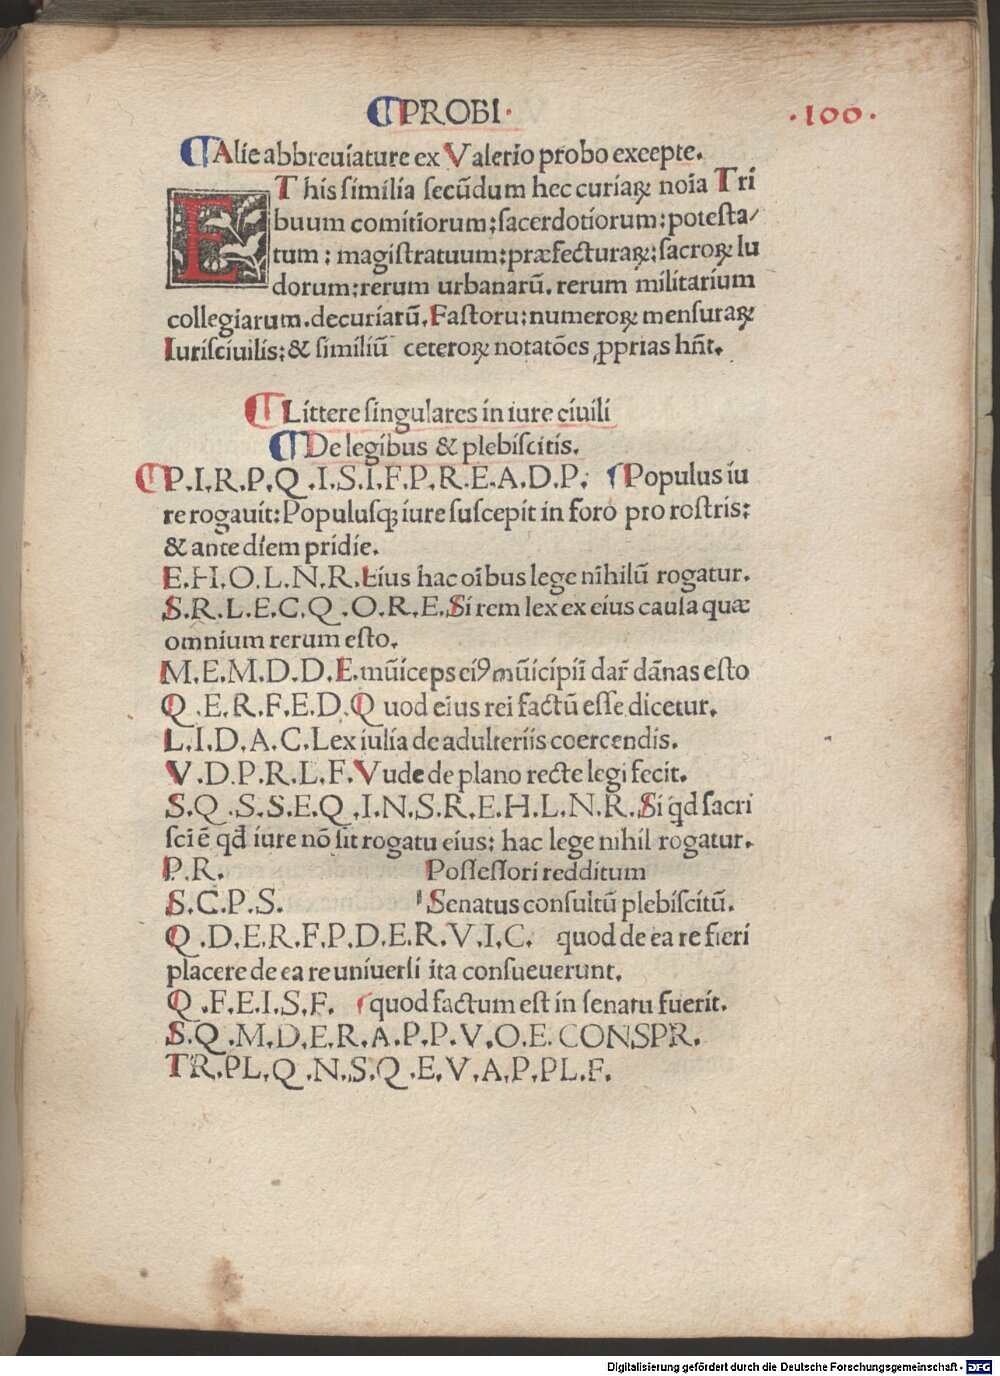 ¶PROBI·
·100·
¶Alie abbreuiature ex Valerio probo excepte.
ET his similia secūdum hec curiaꝝ noīa Tri
buum comitiorum;sacerdotiorum;potesta/
tum ; magistratuum;præfecturaꝝ;sacroꝝ lu
dorum;rerum urbanarū. rerum militarium
collegiarum.decuriarū.Fastoru;numeroꝝ mensuraꝝ
Iurisciuilis;& similiū ceteroꝝ notatōes ꝓprias hn̄t.
¶Littere singulares in iure ciuili
¶De legibus & plebiscitis.
¶P.I.R.P.Q.I.S.I.F.P.R.E.A.D.P; ¶Populus iu
re rogauit:Populusꝗ iure suscepit in foro pro rostris;
& ante diem pridie.
E.H.O.L.N.R.Eius hac oībus lege nihilū rogatur.
S.R.L.E.C.Q.O.R.E.Si rem lex ex eius causa quæ
omnium rerum esto.
M.E.M.D.D.E.mūiceps eiꝰ mūicipii dar̄ dānas esto
Q.E.R.F.E.D.Quod eius rei factū esse dicetur.
L.I.D.A.C.Lex iulia de adulteriis coercendis.
V.D.P.R.L.F.Vude de plano recte legi fecit.
S.Q.S.S.E.Q.I.N.S.R.E.H.L.N.R.Si qd sacri
sci ē qđ iure nō sit rogatu eius; hac lege nihil rogatur.
P.R. Possessori redditum
S.C.P.S. Senatus consultū plebiscitū.
Q.D.E.R.F.P.D.E.R.V.I.C. quod de ea re fieri
placere de ea re uniuersi ita consueuerunt.
Q.F.E.I.S.F. quod factum est in senatu fuerit.
S.Q.M.D.E.R.A.P.P.V.O.E.CONSPR.
TR.PL.Q.N.S.Q.E.V.A.P.PL.F.
Digitalisierung gefördert durch die Deutsche Forschungsgemeinschaft - DFG